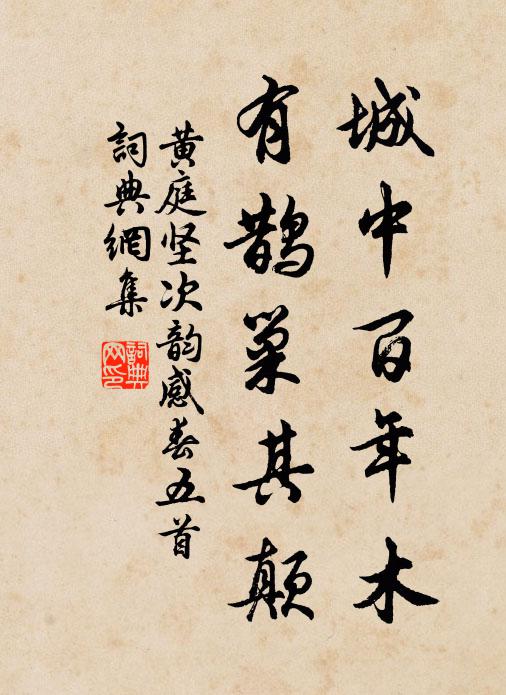 城中百年木
有鹊巢其颠
黄庭坚次韵感春五首
詞典網集
詞典网印